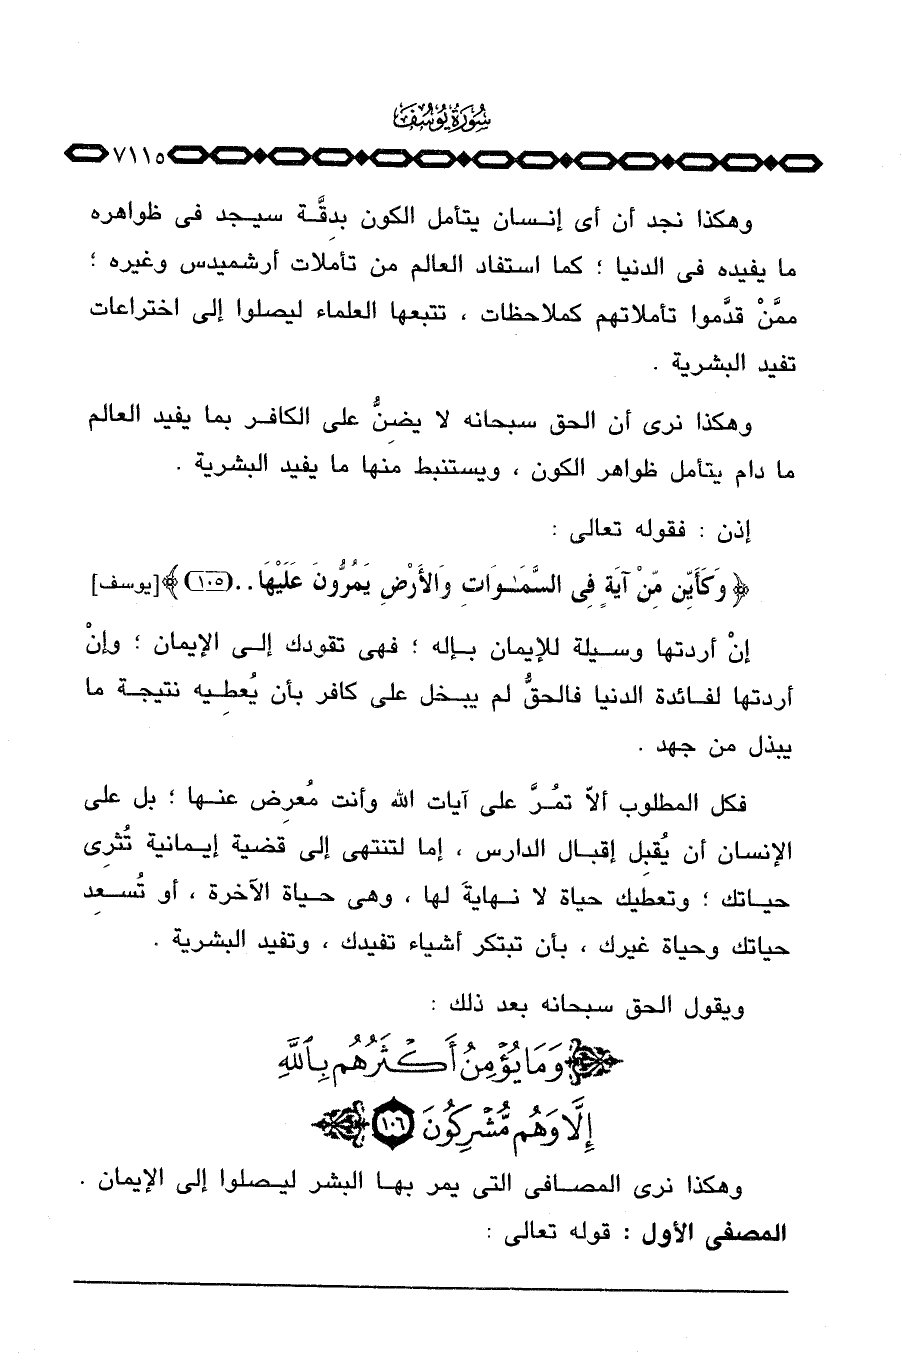 سُورَةُ يُوسُفَ
٧١١٥
وهكذا نجد أن أى إنسان يتأمل الكون بدِقَّة سيجد فى ظواهره
ما يفيده فى الدنيا ؛ كما استفاد العالم من تأملات أرشميدس وغيره ؛
ممَّنْ قدَّموا تأملاتهم كملاحظات ، تتبعها العلماء ليصلوا إلى اختراعات
تفيد البشرية .
وهكذا نرى أن الحق سبحانه لا يضِنُّ على الكافر بما يفيد العالم
ما دام يتأمل ظواهر الكون ، ويستنبط منها ما يفيد البشرية .
إذن : فقوله تعالى :
﴿ وَكَأَيِّن مِّنْ آيَةٍ فِى السَّمَـٰوَاتِ وَالأَرْضِ يَمُرُّونَ عَلَيْهَا.. (١٠٥) ﴾ [يوسف]
إنْ أردتها وسيلة للإيمان بإله ؛ فهى تقودك إلى الإيمان ؛ وإنْ
أردتها لفائدة الدنيا فالحقُّ لم يبخل على كافر بأن يُعطِيه نتيجة ما
يبذل من جهد .
فكل المطلوب ألاَّ تمُرَّ على آيات الله وأنت مُعرِض عنها ؛ بل على
الإنسان أن يُقبِل إقبال الدارس ، إما لتنتهى إلى قضية إيمانية تُثرِى
حياتك ؛ وتعطيك حياة لا نهايةَ لها ، وهى حياة الآخرة ، أو تُسعِد
حياتك وحياة غيرك ، بأن تبتكر أشياء تفيدك ، وتفيد البشرية .
ويقول الحق سبحانه بعد ذلك :
وَمَا يُؤْمِنُ أَكْثَرُهُم بِٱللَّهِ
إِلَّا وَهُم مُّشْرِكُونَ ١٠٦
وهكذا نرى المصافى التى يمر بها البشر ليصلوا إلى الإيمان .
المصفى الأول : قوله تعالى :